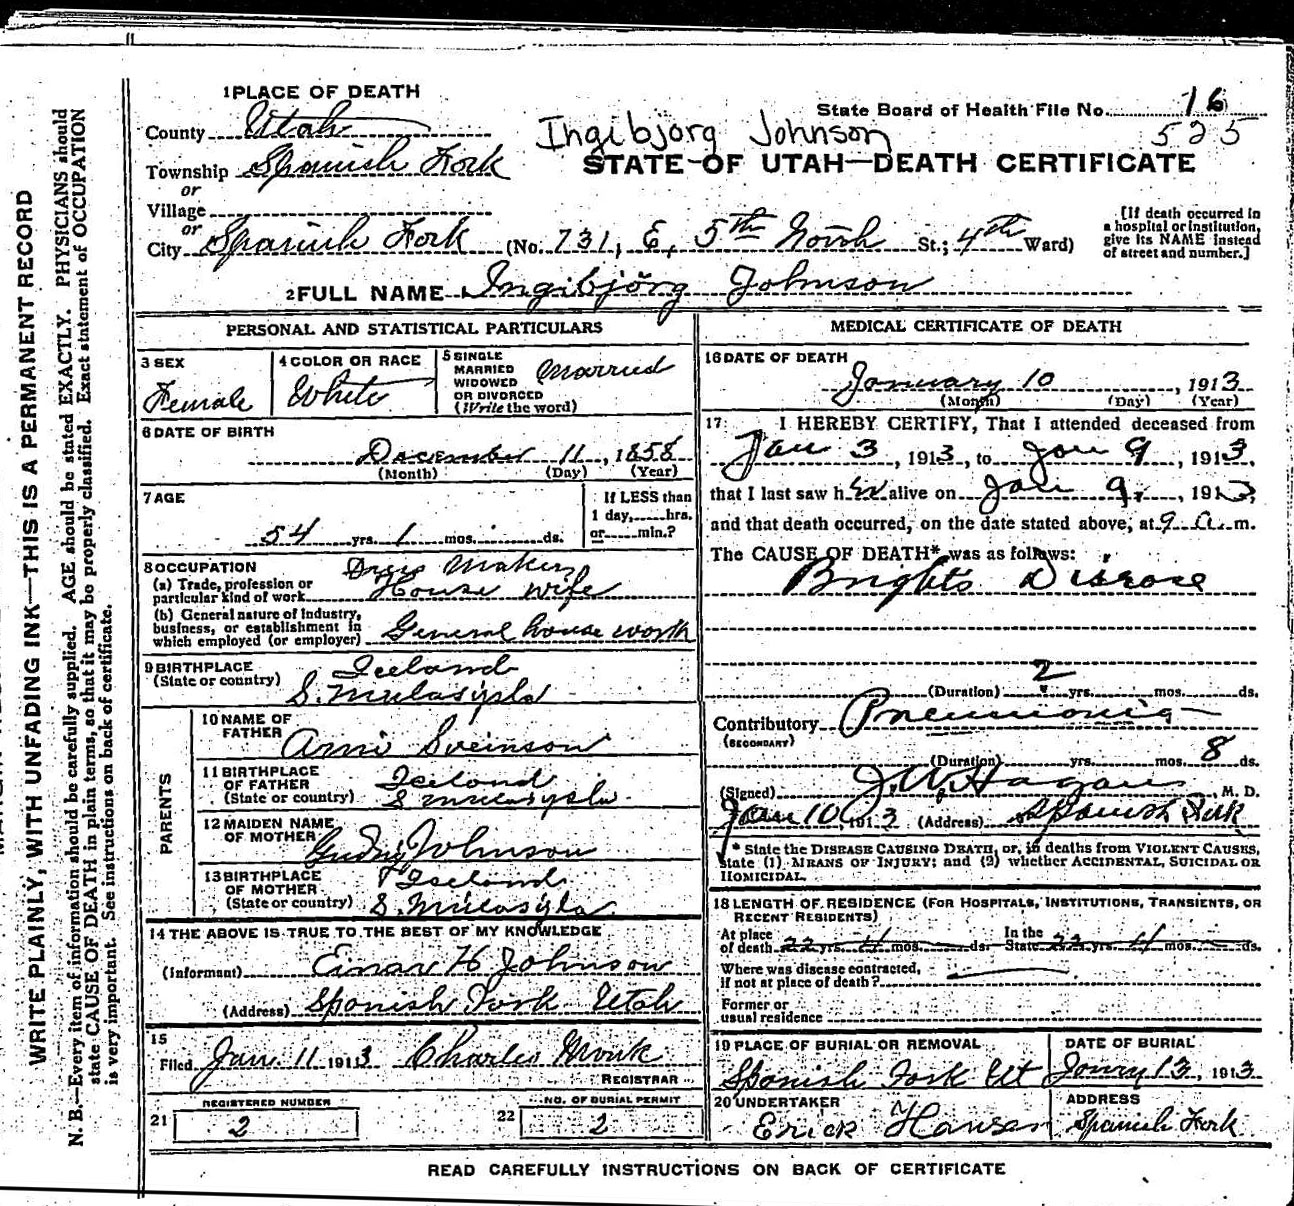 WRITE PLAINLY, WITH UNFADING INK—THIS IS A PERMANENT RECORD
N. B.—Every item of information should be carefully supplied. AGE should be stated EXACTLY. PHYSICIANS should
state CAUSE OF DEATH in plain terms, so that it may be properly classified. Exact statement of OCCUPATION
is very important. See instructions on back of certificate.
1 PLACE OF DEATH
State Board of Health File No. 16
525
County Utah
Ingibjorg Johnson
Township Spanish Fork
STATE OF UTAH—DEATH CERTIFICATE
or
Village
or
City Spanish Fork (No. 731, E, 5th North St.; 4th Ward)
[If death occurred in
a hospital or institution,
give its NAME instead
of street and number.]
2 FULL NAME Ingibjörg Johnson
PERSONAL AND STATISTICAL PARTICULARS
3 SEX
Female
4 COLOR OR RACE
White
5 SINGLE
MARRIED
WIDOWED
OR DIVORCED
(Write the word)
Married
6 DATE OF BIRTH
December 11, 1858
(Month) (Day) (Year)
7 AGE
54 yrs. 1 mos. ds.
If LESS than
1 day, hrs.
or min.?
8 OCCUPATION
(a) Trade, profession or
particular kind of work
Dress Making
House wife
(b) General nature of industry,
business, or establishment in
which employed (or employer)
General house work
9 BIRTHPLACE
(State or country)
Iceland
S. Mulasysla
PARENTS
10 NAME OF
FATHER
Arni Sveinson
11 BIRTHPLACE
OF FATHER
(State or country)
Iceland
S Mulasysla
12 MAIDEN NAME
OF MOTHER
Gudny Johnson
13 BIRTHPLACE
OF MOTHER
(State or country)
Iceland
S. Mulasysla
14 THE ABOVE IS TRUE TO THE BEST OF MY KNOWLEDGE
(Informant) Einar H Johnson
(Address) Spanish Fork Utah
15
Filed Jan. 11 1913 Charles Monk
REGISTRAR
21
REGISTERED NUMBER
2
22
NO. OF BURIAL PERMIT
2
MEDICAL CERTIFICATE OF DEATH
16 DATE OF DEATH
January 10, 1913
(Month) (Day) (Year)
17 I HEREBY CERTIFY, That I attended deceased from
Jan 3, 1913, to Jan 9, 1913,
that I last saw h er alive on Jan 9, 1913,
and that death occurred, on the date stated above, at 9 a. m.
The CAUSE OF DEATH* was as follows:
Brights Disease
(Duration) 2 yrs. mos. ds.
Contributory Pneumonia
(SECONDARY)
(Duration) yrs. mos. 8 ds.
(Signed) J. W. Hagan, M. D.
Jan 10, 1913 (Address) Spanish Fork
* State the DISEASE CAUSING DEATH, or, in deaths from VIOLENT CAUSES,
state (1) MEANS OF INJURY; and (2) whether ACCIDENTAL, SUICIDAL OR
HOMICIDAL.
18 LENGTH OF RESIDENCE (FOR HOSPITALS, INSTITUTIONS, TRANSIENTS, OR
RECENT RESIDENTS)
At place
of death 22 yrs. 4 mos. ds.
In the
State 22 yrs. 4 mos. ds.
Where was disease contracted,
if not at place of death?
Former or
usual residence
19 PLACE OF BURIAL OR REMOVAL
Spanish Fork Ut
DATE OF BURIAL
Janry 13, 1913
20 UNDERTAKER
Erick Hansen
ADDRESS
Spanish Fork
READ CAREFULLY INSTRUCTIONS ON BACK OF CERTIFICATE